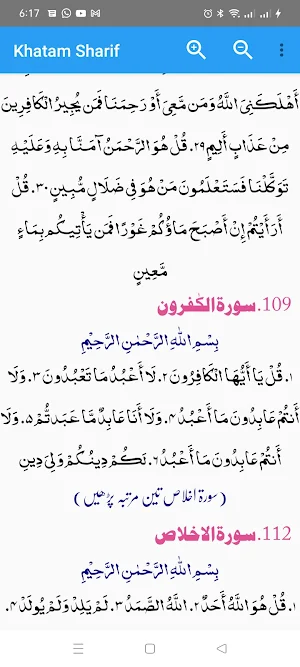 6:17
Khatam Sharif
أَهْلَكَنِيَ اللَّهُ وَمَن مَّعِيَ أَوْ رَحِمَنَا فَمَن يُجِيرُ الْكَافِرِينَ
مِنْ عَذَابٍ أَلِيمٍ ٢٩. قُلْ هُوَ الرَّحْمَنُ آمَنَّا بِهِ وَعَلَيْهِ
تَوَكَّلْنَا فَسَتَعْلَمُونَ مَنْ هُوَ فِي ضَلَالٍ مُّبِينٍ ٣٠. قُلْ
أَرَأَيْتُمْ إِنْ أَصْبَحَ مَاؤُكُمْ غَوْرًا فَمَن يَأْتِيكُم بِمَاءٍ
مَّعِينٍ
109. سورة الكٰفرون
بِسْمِ اللهِ الرَّحْمٰنِ الرَّحِيْمِ
١. قُلْ يَا أَيُّهَا الْكَافِرُونَ ٢. لَا أَعْبُدُ مَا تَعْبُدُونَ ٣. وَلَا
أَنتُمْ عَابِدُونَ مَا أَعْبُدُ ٤. وَلَا أَنَا عَابِدٌ مَّا عَبَدتُّمْ ٥. وَلَا
أَنتُمْ عَابِدُونَ مَا أَعْبُدُ ٦. لَكُمْ دِينُكُمْ وَلِيَ دِينِ
(سورۃ اخلاص تین مرتبہ پڑھیں)
112. سورة الاخلاص
بِسْمِ اللهِ الرَّحْمٰنِ الرَّحِيْمِ
١. قُلْ هُوَ اللَّهُ أَحَدٌ ٢. اللَّهُ الصَّمَدُ ٣. لَمْ يَلِدْ وَلَمْ يُولَدْ ٤.